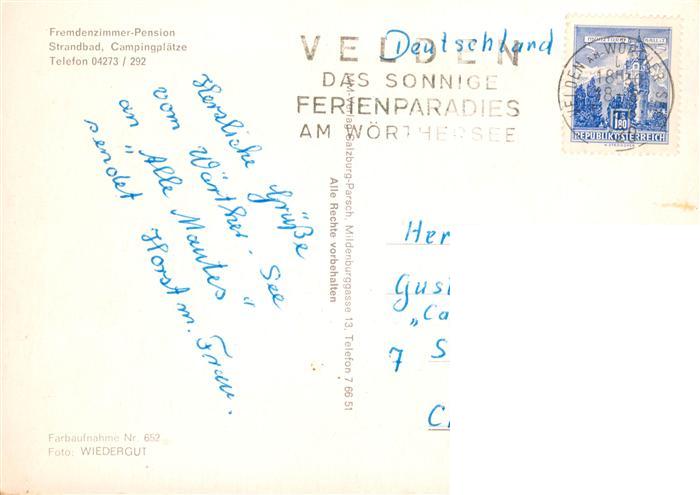 Fremdenzimmer-Pension
Strandbad, Campingplätze
Telefon 04273 / 292
Deutschland
VELDEN
DAS SONNIGE
FERIENPARADIES
AM WÖRTHERSEE
VELDEN AM WÖRTHER SEE
S 1.80
REPUBLIK ÖSTERREICH
Herzliche Grüße
vom Wörther-See
an "Alle Mautes"
sendet Horst m. Frau.
Salzburg-Parsch, Mildenburggasse 13, Telefon 7 66 51
Alle Rechte vorbehalten
Her
Gust
"Ca
7 S
C
Farbaufnahme Nr. 652
Foto: WIEDERGUT